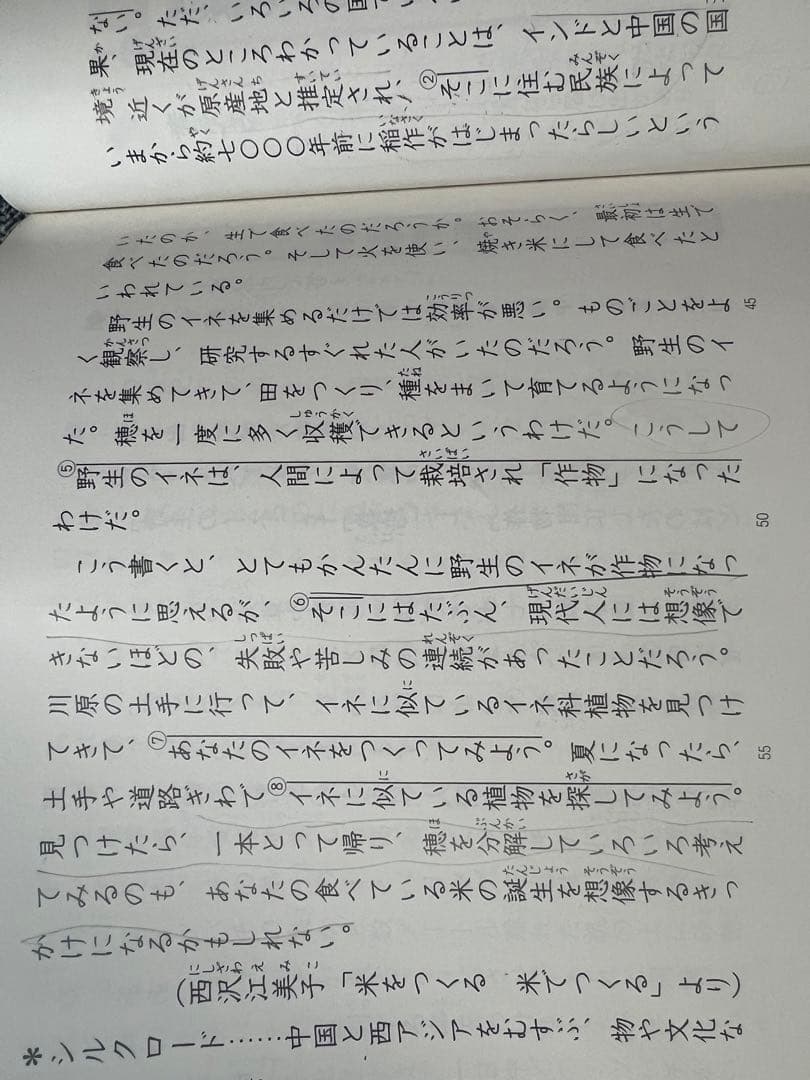 ない。ただ、いろいろの国
果、現在のところわかっていることは、インドと中国の国
境近くが原産地と推定され、②そこに住む民族によって
いまから約七〇〇〇年前に稲作がはじまったらしいという
いたのか、生で食べたのだろうか。おそらく、最初は生で
食べたのだろう。そして火を使い、焼き米にして食べたと
いわれている。
野生のイネを集めるだけでは効率が悪い。ものごとをよ
45
く観察し、研究するすぐれた人がいたのだろう。野生のイ
ネを集めてきて、田をつくり、種をまいて育てるようになっ
た。穂を一度に多く収穫できるというわけだ。こうして
⑤野生のイネは、人間によって栽培され「作物」になった
わけだ。
50
こう書くと、とてもかんたんに野生のイネが作物になっ
たように思えるが、⑥そこにはたぶん、現代人には想像で
きないほどの、失敗や苦しみの連続があったことだろう。
川原の土手に行って、イネに似ているイネ科植物を見つけ
てきて、⑦あなたのイネをつくってみよう。夏になったら、
55
土手や道路ぎわで⑧イネに似ている植物を探してみよう。
見つけたら、一本とって帰り、穂を分解していろいろ考え
てみるのも、あなたの食べている米の誕生を想像するきっ
かけになるかもしれない。
(西沢江美子「米をつくる 米でつくる」より)
*シルクロード……中国と西アジアをむすぶ、物や文化な